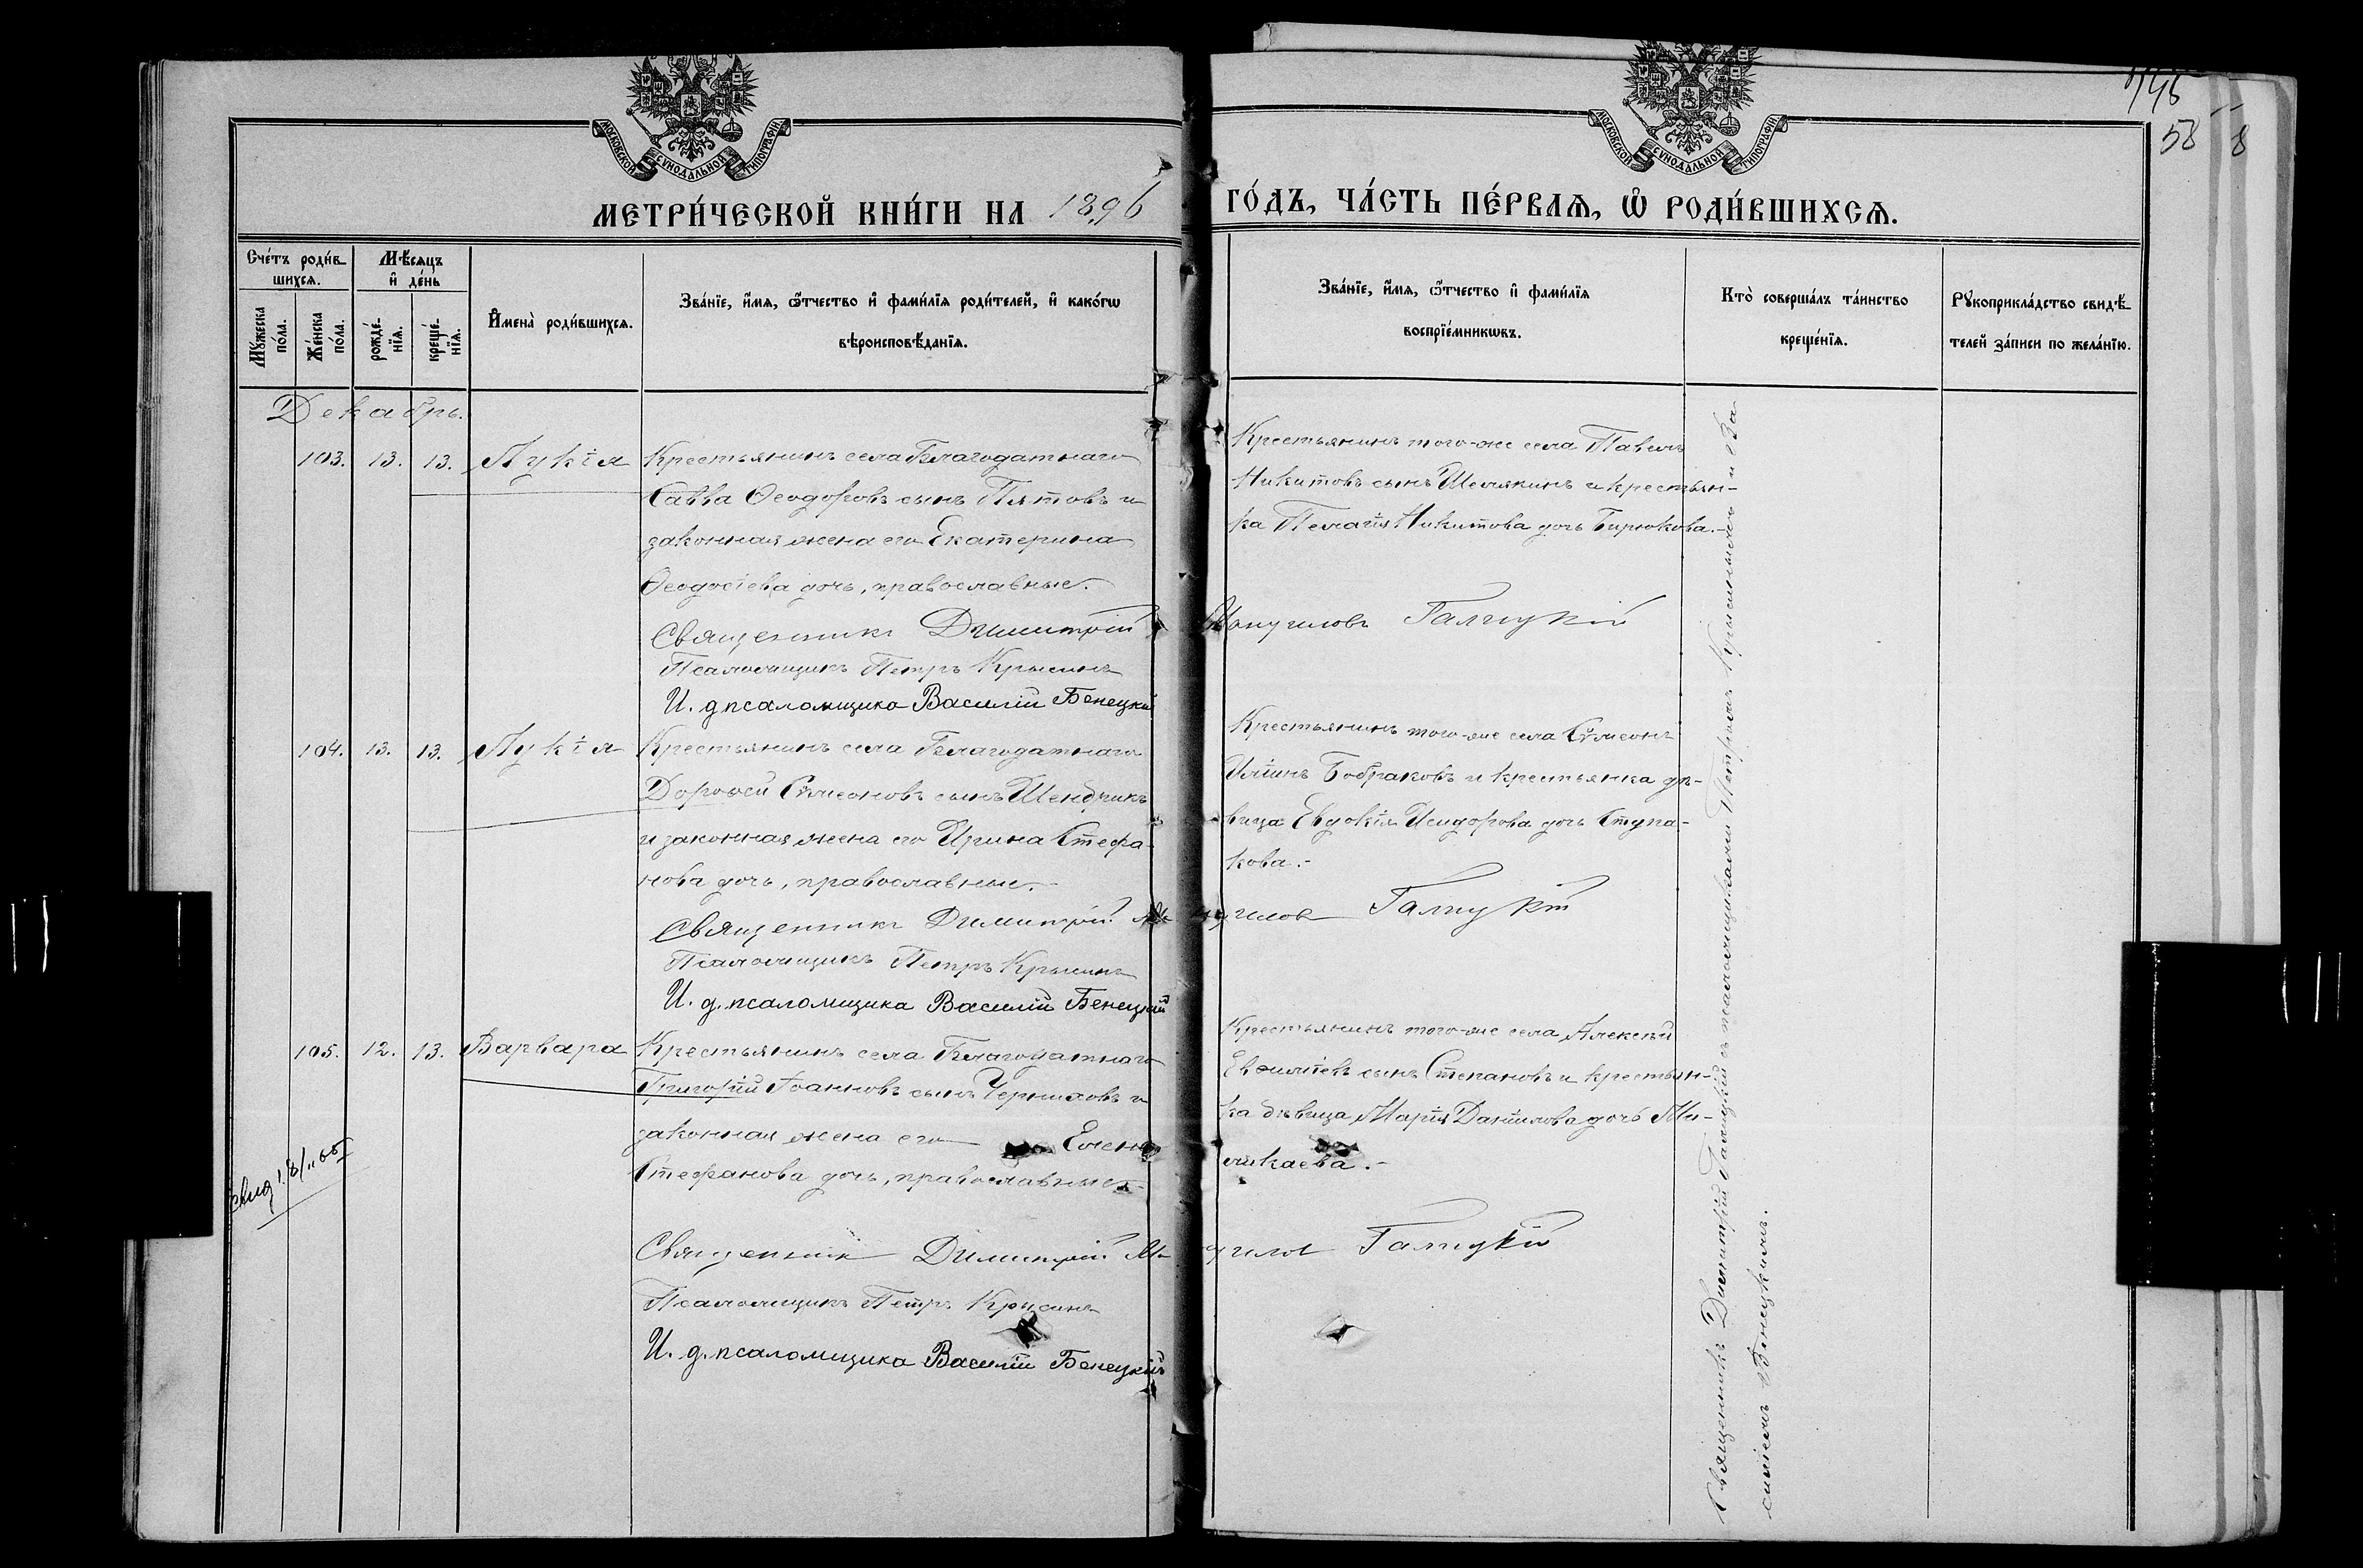 МОСКОВСКОЙ СѴНОДАЛЬНОЙ ТИПОГРАФІИ
МОСКОВСКОЙ СѴНОДАЛЬНОЙ ТИПОГРАФІИ
58
8
МЕТРИ́ЧЕСКОЙ КНИ́ГИ НА 1896
ГО́ДЪ, ЧА́СТЬ ПЕ́РВАѦ, Ѽ РОДИ́ВШИХСѦ.
Сче́тъ роди́в-
шихсѧ.
Мꙋ́жеска
по́ла.
Же́нска
по́ла.
Мѣ́сѧцъ
и҆ де́нь
рожде́-
нїѧ.
креще́-
нїѧ.
И҆мена̀ роди́вшихсѧ.
Зва́нїе, и҆́мѧ, ѻ҆́тчество и҆ фами́лїѧ роди́телей, и҆ како́гѡ
вѣроисповѣ́данїѧ.
Зва́нїе, и҆́мѧ, ѻ҆́тчество и҆ фами́лїѧ
воспрїе́мникѡвъ.
Кто̀ соверша́лъ та́инство
креще́нїѧ.
Рꙋкоприкла́дство свидѣ́-
телей за́писи по жела́нїю.
Декабрь.
103. 13. 13. Лукія
Крестьянинъ села Благодатнаго
Савва Ѳеодоровъ сынъ Пятовъ и
законная жена его Екатерина
Ѳеодосіева дочь, православные.
Крестьянинъ того-же села Павелъ
Никитовъ сынъ Шелякинъ и крестьян-
ка Пелагія Никитова дочь Бирюкова.-
Священникъ Димитрій Мануиловъ Галицкій
Псаломщикъ Петръ Крысинъ
И. д псаломщика Василій Бенецкій
104. 13. 13. Лукія
Крестьянинъ села Благодатнаго
Дороѳей Сѵмеоновъ сынъ Шендрикъ
и законная жена его Ирина Стефа-
нова дочь, православные.-
Крестьянинъ того-же села Сѵмеонъ
Иліинъ Бобраковъ и крестьянка дѣ-
вица Евдокія Исидорова дочь Ступа-
кова.-
Священникъ Димитрій Галицкій
Псаломщикъ Петръ Крысинъ
И. д. псаломщика Василій Бенецкій
105. 12. 13. Варвара
Крестьянинъ села Благодатнаго
Григорій Іоанновъ сынъ Черниховъ и
законная жена его Елена
Стефанова дочь, православные.-
Крестьянинъ того-же села Алексѣй
Евѳиміевъ сынъ Степановъ и крестьян-
ка дѣвица Марія Даніилова дочь Ми-
Священникъ Димитрій Галицкій
Псаломщикъ Петръ Крысинъ
И. д. псаломщика Василій Бенецкій
Священникъ Димитрій Галицкій съ псаломщиками Петромъ Крысинымъ и Ва-
силіемъ Бенецкимъ.